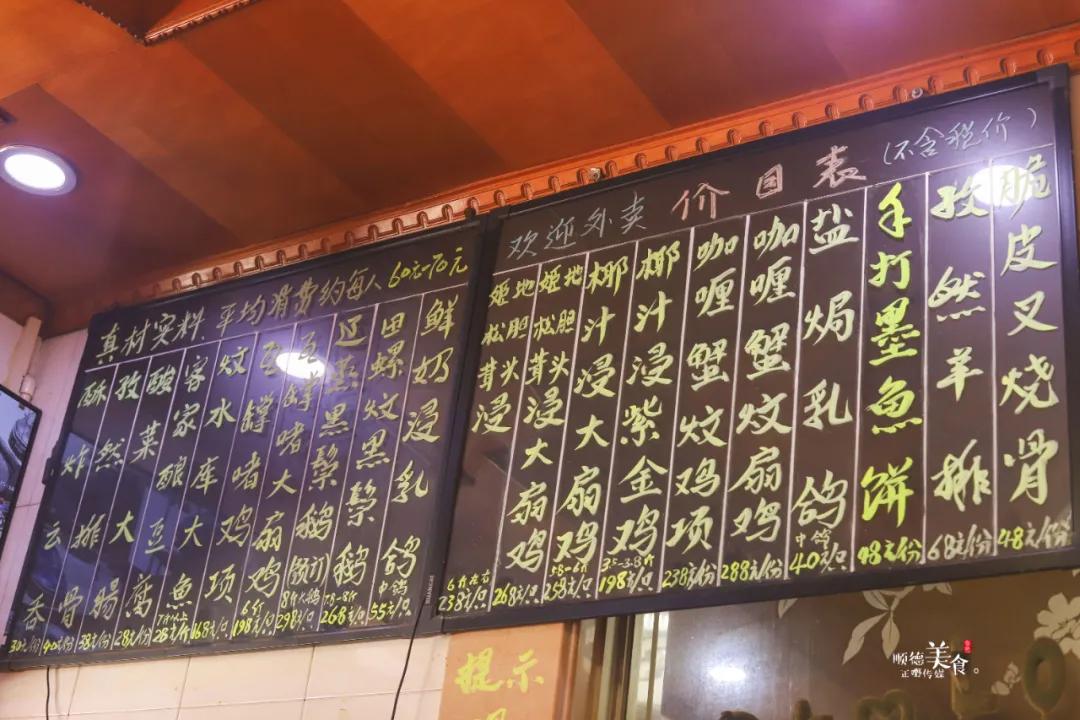 真材实料 平均消费约每人60元-70元
酥炸云吞 30元/份
孜然排骨 40元/份
酸菜大肠 38元/份
客家酿豆腐 28元/份
炆水库大魚 7斤以上 28元/斤
瓦罉啫鸡项 168元/只
瓦罉啫大扇鸡 6斤 198元/只
蒸黑鬃鹅(预订) 298元/只
田螺炆黑鬃鹅 7.8-8斤 268元/只
鲜奶浸乳鸽 中鸽 55元/只
欢迎外卖 价目表 (不含税价)
姬松茸地胆头浸 6斤左右 238元/只
姬松茸地胆头浸大扇鸡 268元/只
椰汁浸大扇鸡 5.8-6斤 258元/只
椰汁浸紫金鸡 3.5-3.8斤 198元/只
咖喱蟹炆鸡项 238元/份
咖喱蟹炆扇鸡 288元/份
盐焗乳鸽 中鸽 40元/只
手打墨魚饼 48元/份
孜然羊排 68元/份
脆皮叉烧骨 48元/份
提示
顺德美食
正嘢传媒